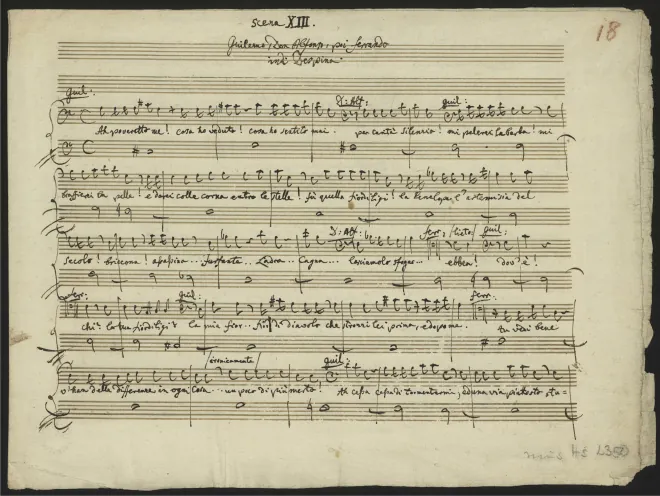 scena XIII.
18
Guilelmo, Don Alfonso, poi Ferrando
indi Despina
Guil: D: Alf: Guil:
Ah poveretto me! cosa ho veduto! cosa ho sentito mai. per carità silenzio! mi pelerei la barba! mi
graffierei la pelle! e darei colle corna entro le stelle! fù quella Fiordiligi! la Penelope, l'Artemisia del
D: Alf: Ferr: lieto Guil:
secolo! briccona! assassina... furfante... Ladra... Cagna... lasciamolo sfogar... ebben! dov'è!
Ferr: Guil: Ferr:
chi? la tua Fiordiligi? la mia Fior... Fior di diavolo che strozzi lei prima, e dopo me. tu vedi bene
ironicamente Guil:
v'han delle differenze in ogni Cosa... un poco di più merto! Ah cessa cessa di tormentarmi, ed una via piuttosto stu=